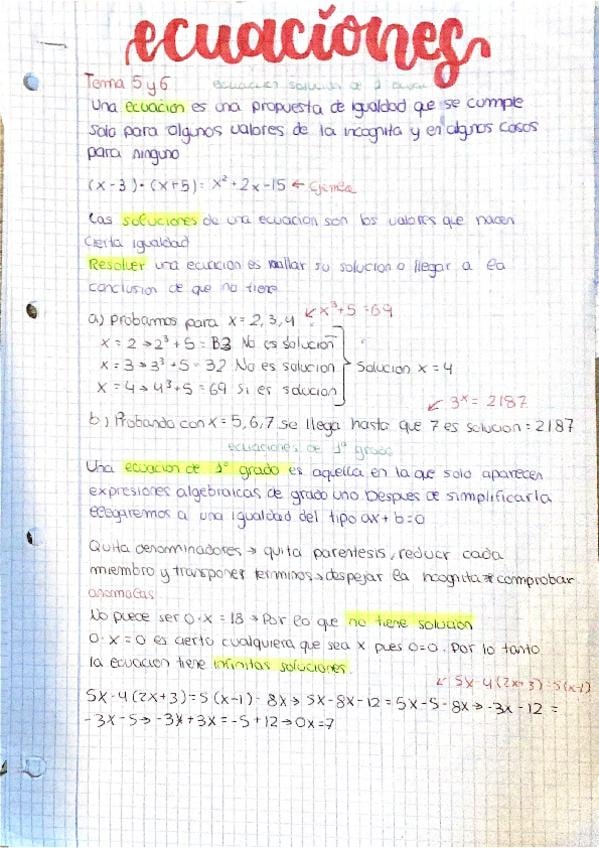 ecuaciones
Tema 5 y 6
Una ecuación es una propuesta de igualdad que se cumple
solo para algunos valores de la incognita y en algunos casos
para ninguno
(x-3)·(x+5)= x²+2x-15 ← Ejemplo
Las soluciones de una ecuacion son los valores que hacen
cierta igualdad
Resolver una ecuacion es hallar su solucion o llegar a la
conclusion de que no tiene
a) probamos para x=2,3,4 ↙x³+5=69
x=2→2³+5=13 No es solución
x=3→3³+5=32 No es solucion
x=4→4³+5=69 Si es solucion
Solucion x=4
↙ 3ˣ=2187
b) Probando con x=5,6,7 se llega hasta que 7 es solucion: 2187
ecuaciones de 1º grado
Una ecuacion de 1º grado es aquella en la que solo aparecen
expresiones algebraicas de grado uno. Despues de simplificarla
llegaremos a una igualdad del tipo ax+b=0
Quita denominadores → quita parentesis, reducir cada
miembro y transponer terminos→despejar la incognita comprobar
anomalias
No puede ser 0·x=18→Por lo que no tiene solucion
0·x=0 es cierto cualquiera que sea x pues 0=0. Por lo tanto
la ecuacion tiene infinitas soluciones.
↙ 5x-4(2x+3)=5(x-1)
5x-4(2x+3)=5(x-1)-8x→5x-8x-12=5x-5-8x→-3x-12=
-3x-5→-3x+3x=-5+12→0x=7